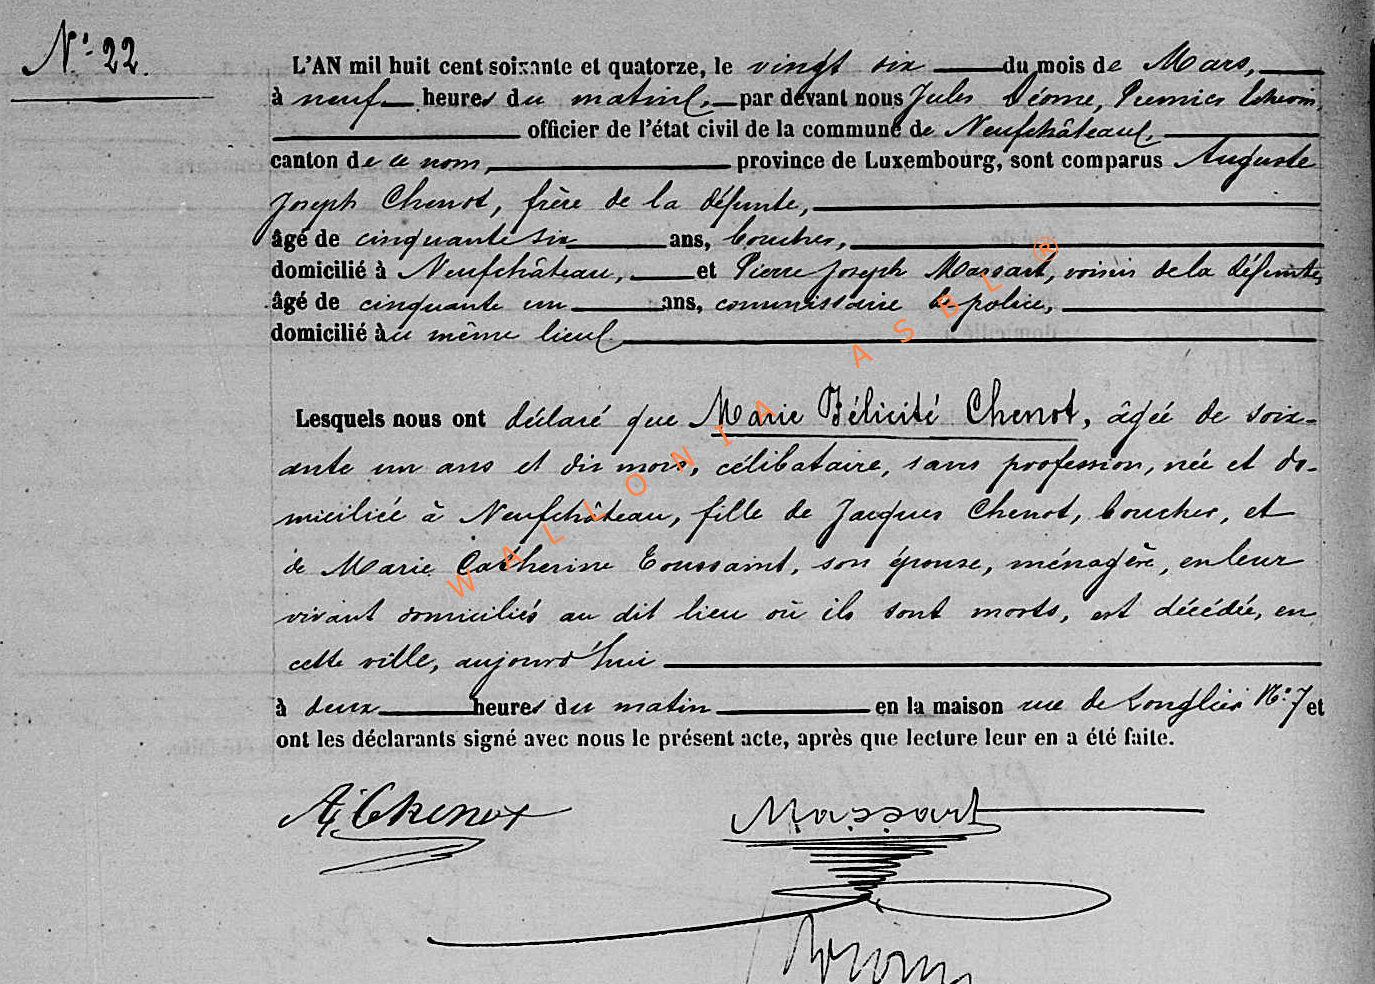 N.° 22.
L'AN mil huit cent soixante et quatorze, le vingt six du mois de Mars,
à neuf heures du matin, par devant nous Jules Déome, Premier Echevin,
officier de l'état civil de la commune de Neufchâteau,
canton de ce nom, province de Luxembourg, sont comparus Auguste
Joseph Chenot, frère de la défunte,
âgé de cinquante six ans, boucher,
domicilié à Neufchâteau, et Pierre Joseph Massart, voisin de la défunte,
âgé de cinquante un ans, commissaire de police,
domicilié au même lieu
Lesquels nous ont déclaré que Marie Félicité Chenot, âgée de soix-
ante un ans et dix mois, célibataire, sans profession, née et do-
miciliée à Neufchâteau, fille de Jacques Chenot, boucher, et
de Marie Catherine Toussaint, son épouse, ménagère, en leur
vivant domiciliés au dit lieu où ils sont morts, est décédée, en
cette ville, aujourd'hui
à deux heures du matin en la maison rue de Longlier N.° 7 et
ont les déclarants signé avec nous le présent acte, après que lecture leur en a été faite.
AJ Chenot Massart
WALLONIA ASBL ®